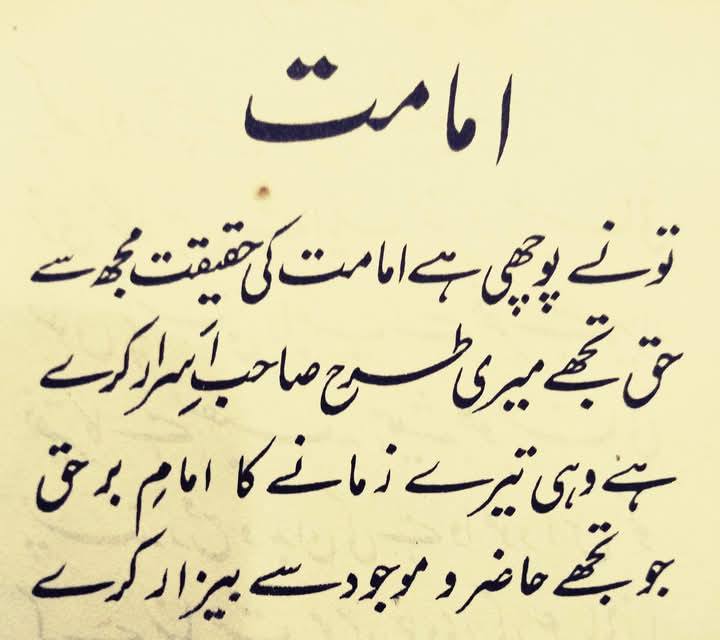 امامت
تو نے پوچھی ہے امامت کی حقیقت مجھ سے
حق تجھے میری طرح صاحب اَسرار کرے
ہے وہی تیرے زمانے کا امامِ برحق
جو تجھے حاضر و موجود سے بیزار کرے